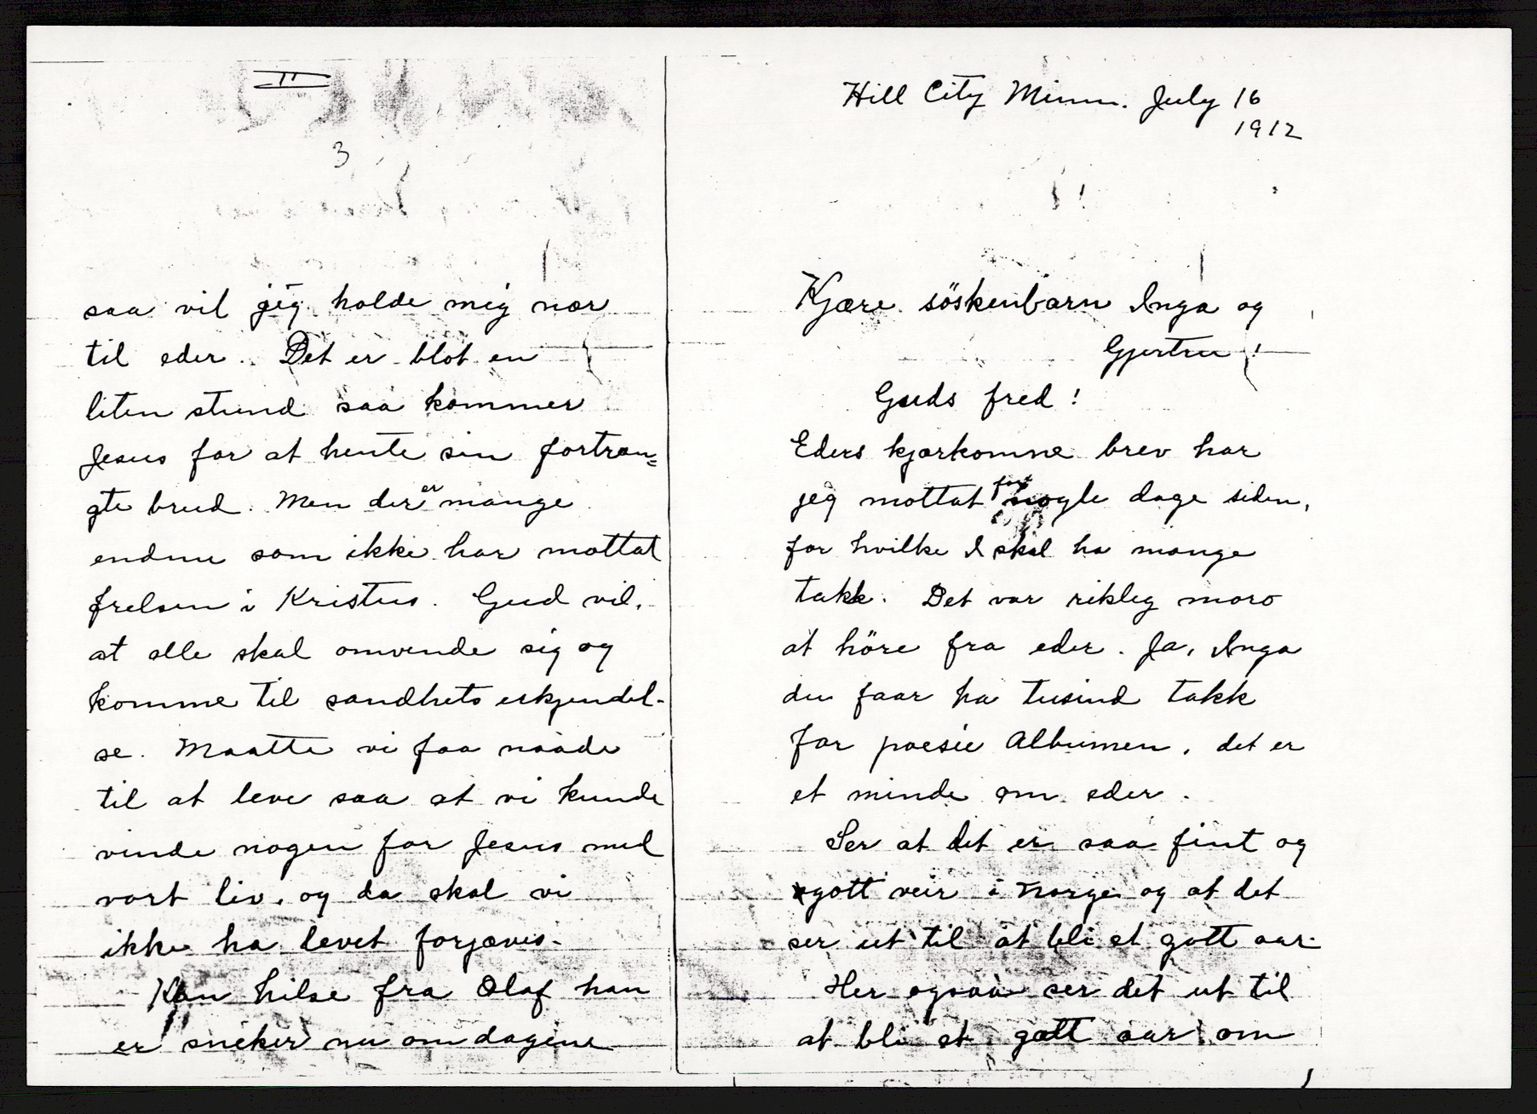 II
3
saa vil jeg holde mig nær
til eder. Det er blot en
liten stund saa kommer
Jesus for at hente sin fortræn=
gte brud. Men der er mange
endnu som ikke har mottat
frelsen i Kristus. Gud vil,
at alle skal omvende sig og
komme til sandhets erkjendel-
se. Maatte vi faa naade
til at leve saa at vi kunde
vinde nogen for Jesus med
vort liv, og da skal vi
ikke ha levet forjæves.
Kan hilse fra Olaf han
er snekker nu om dagene
Hill City Minn. July 16
1912
Kjære söskenbarn Inga og
Gjertru!
Guds fred!
Eders kjærkomne brev har
jeg mottat for nogle dage siden,
for hvilke I skal ha mange
takk. Det var riktig moro
at höre fra eder. Ja, Inga
du faar ha tusind takk
for poesie Albumen, det er
et minde om eder.
Ser at det er saa fint og
gott veir i Norge og at det
ser ut til at bli et gott aar.
Her ogsaa ser det ut til
at bli et gott aar om